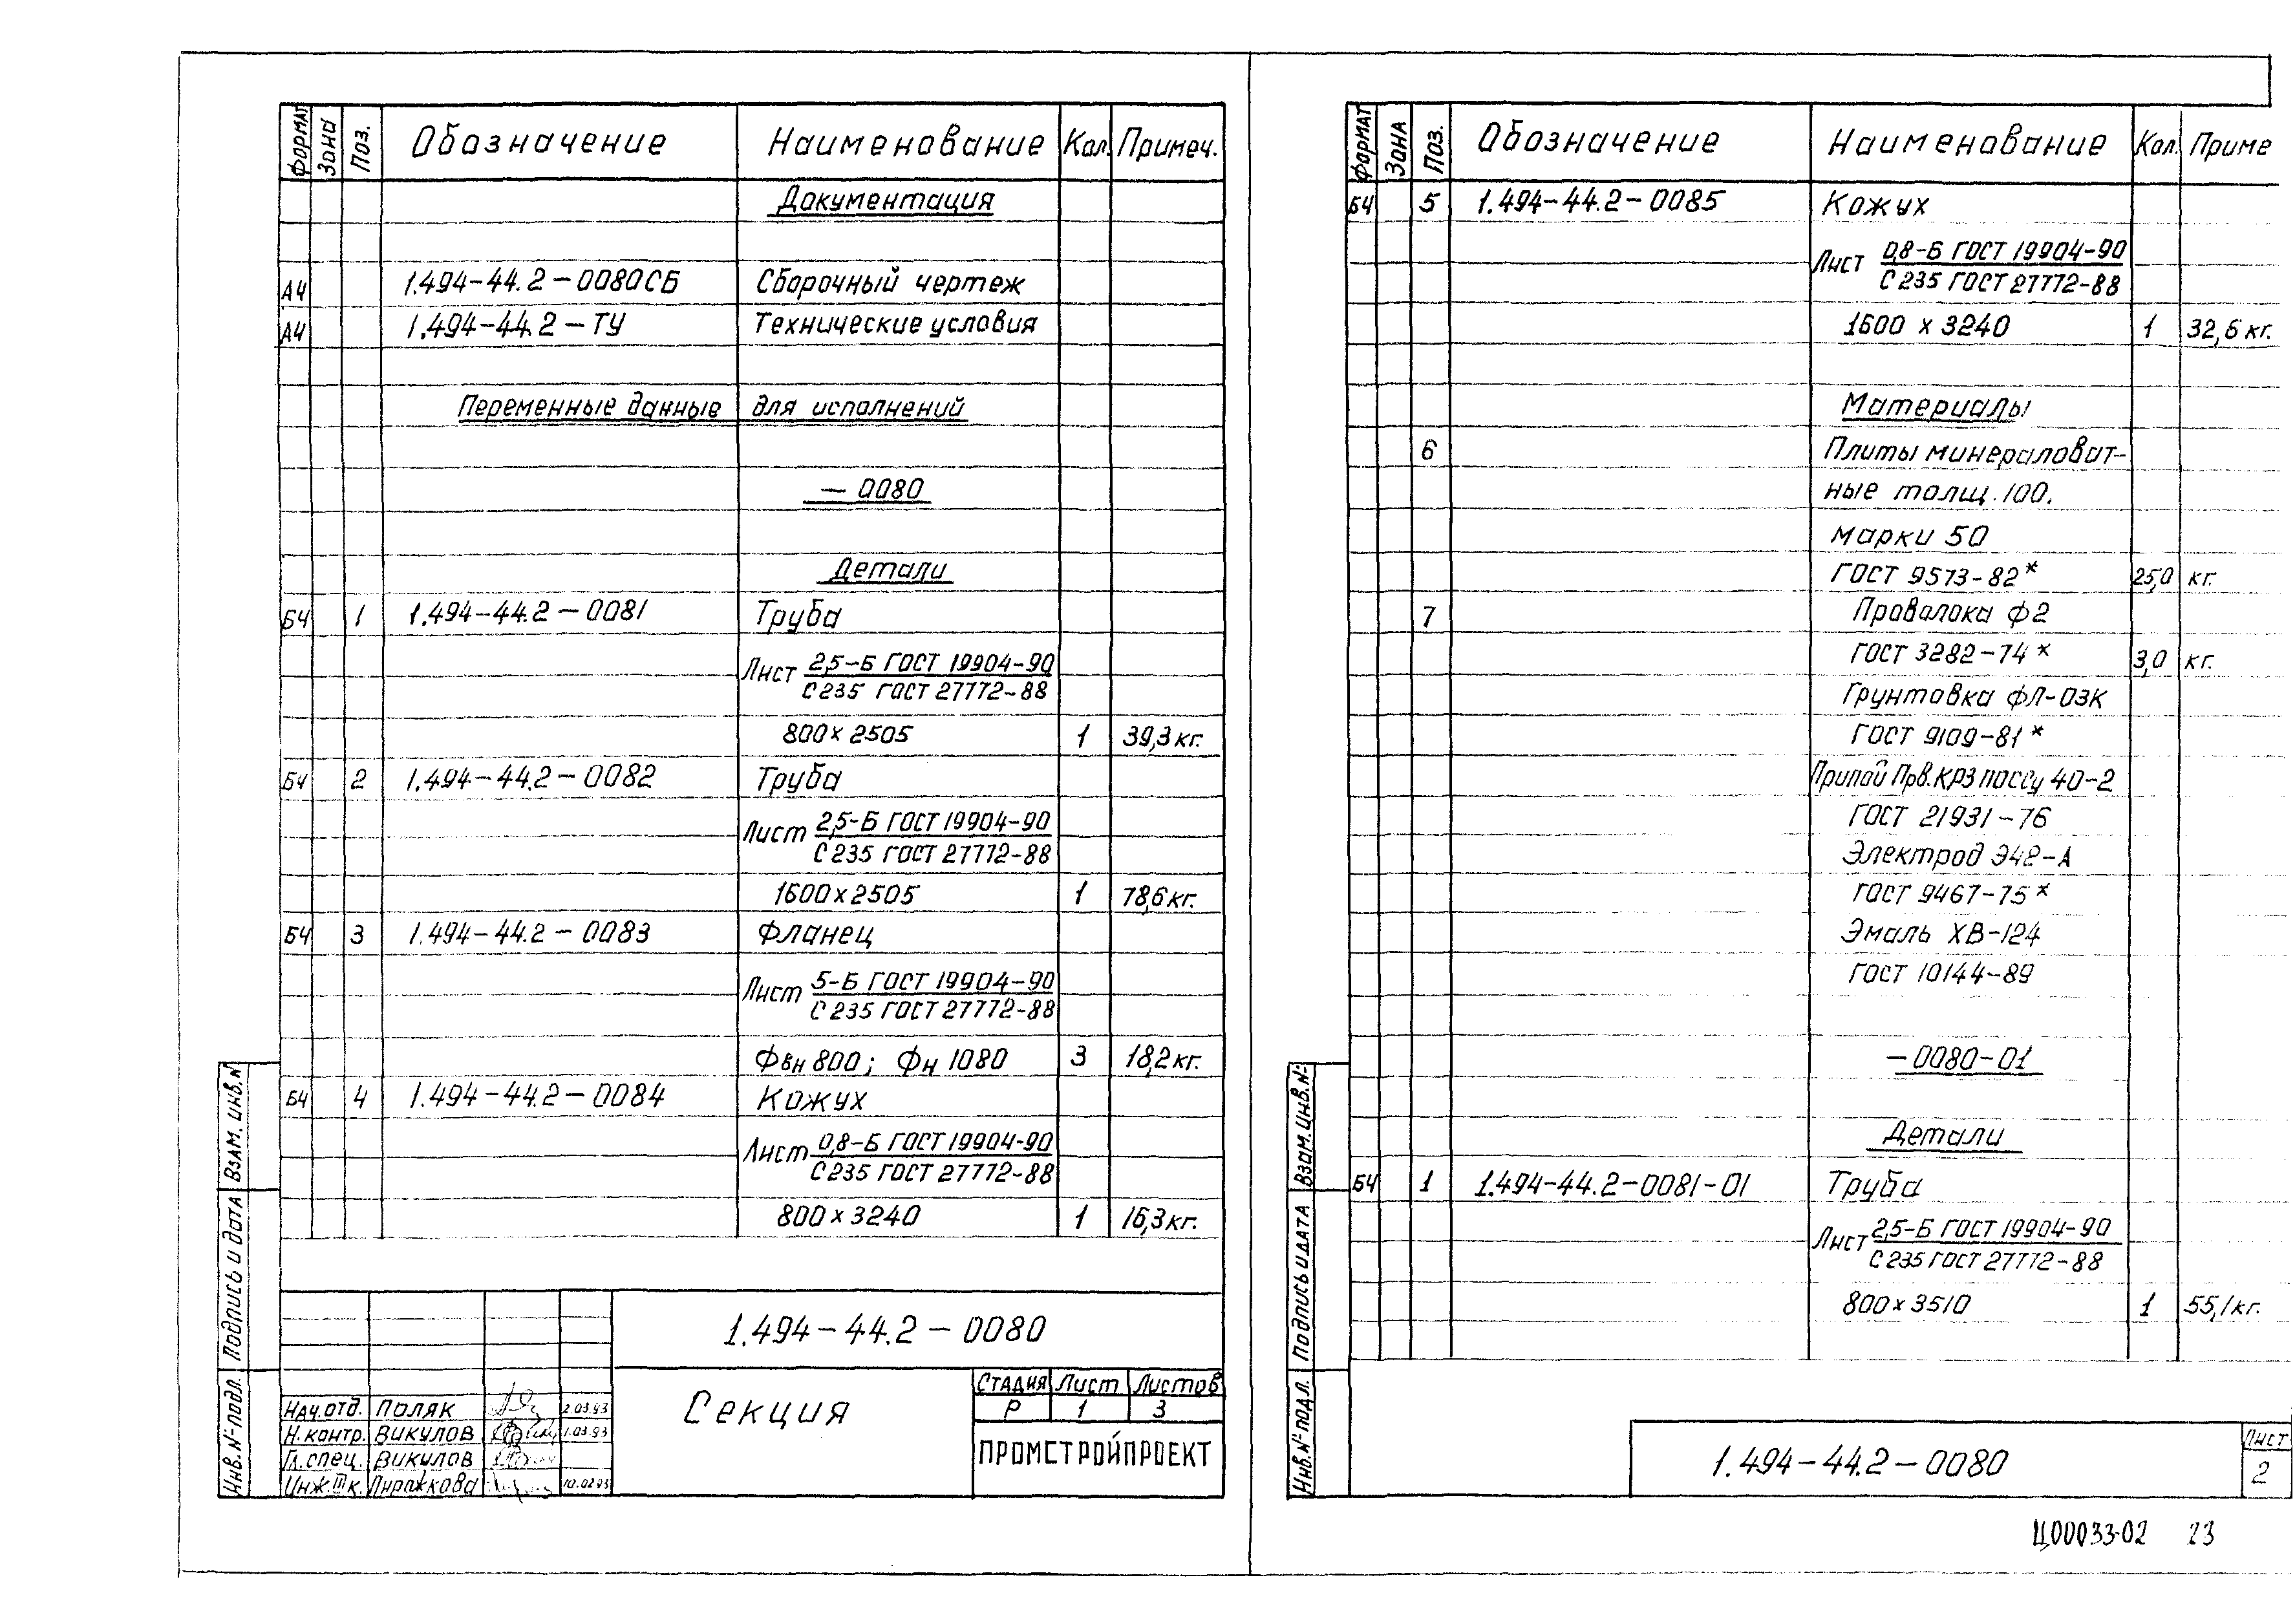 Формат Зона Поз. Обозначение Наименование Кол. Примеч.
Документация
А4 1.494-44.2-0080СБ Сборочный чертеж
А4 1.494-44.2-ТУ Технические условия
Переменные данные для исполнений
— 0080
Детали
БЧ 1 1.494-44.2-0081 Труба
Лист 2,5-Б ГОСТ 19904-90
С235 ГОСТ 27772-88
800х2505 1 39,3 кг.
БЧ 2 1.494-44.2-0082 Труба
Лист 2,5-Б ГОСТ 19904-90
С235 ГОСТ 27772-88
1600х2505 1 78,6 кг.
БЧ 3 1.494-44.2-0083 Фланец
Лист 5-Б ГОСТ 19904-90
С235 ГОСТ 27772-88
Фвн 800; Фн 1080 3 18,2 кг.
БЧ 4 1.494-44.2-0084 Кожух
Лист 0,8-Б ГОСТ 19904-90
С235 ГОСТ 27772-88
800х3240 1 16,3 кг.
Взам. инв. №
Подпись и дата
Инв. № подл.
1.494-44.2-0080
Секция
Стадия Лист Листов
Р 1 3
ПРОМСТРОЙПРОЕКТ
Нач.отд. Поляк 2.03.93
Н.контр. Викулов 1.03.93
Гл.спец. Викулов
Инж.IIIк. 10.02.93
Формат Зона Поз. Обозначение Наименование Кол. Приме
БЧ 5 1.494-44.2-0085 Кожух
Лист 0,8-Б ГОСТ 19904-90
С235 ГОСТ 27772-88
1600х3240 1 32,6 кг.
Материалы
6 Плиты минераловат-
ные толщ.100.
марки 50
ГОСТ 9573-82* 25,0 кг.
7 Проволока ф2
ГОСТ 3282-74* 3,0 кг.
Грунтовка ФЛ-03К
ГОСТ 9109-81*
Припой Прв.КР3 ПОССу 40-2
ГОСТ 21931-76
Электрод Э42-А
ГОСТ 9467-75*
Эмаль ХВ-124
ГОСТ 10144-89
-0080-01
Детали
БЧ 1 1.494-44.2-0081-01 Труба
Лист 2,5-Б ГОСТ 19904-90
С235 ГОСТ 27772-88
800х3510 1 55,1 кг.
Взам. инв. №
Подпись и дата
Инв. № подл.
1.494-44.2-0080
Лист
2
Ц00033-02 23